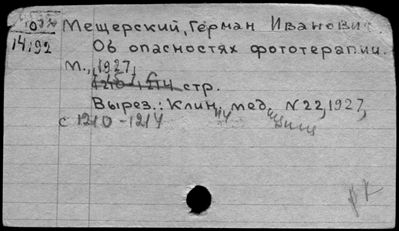 Мещерский, Герман Иванович
14192
Об опасностях фототерапии.
М., 1927.
1210-1214 стр.
Вырез.: Клин. мед., N 22, 1927,
с 1210-1214